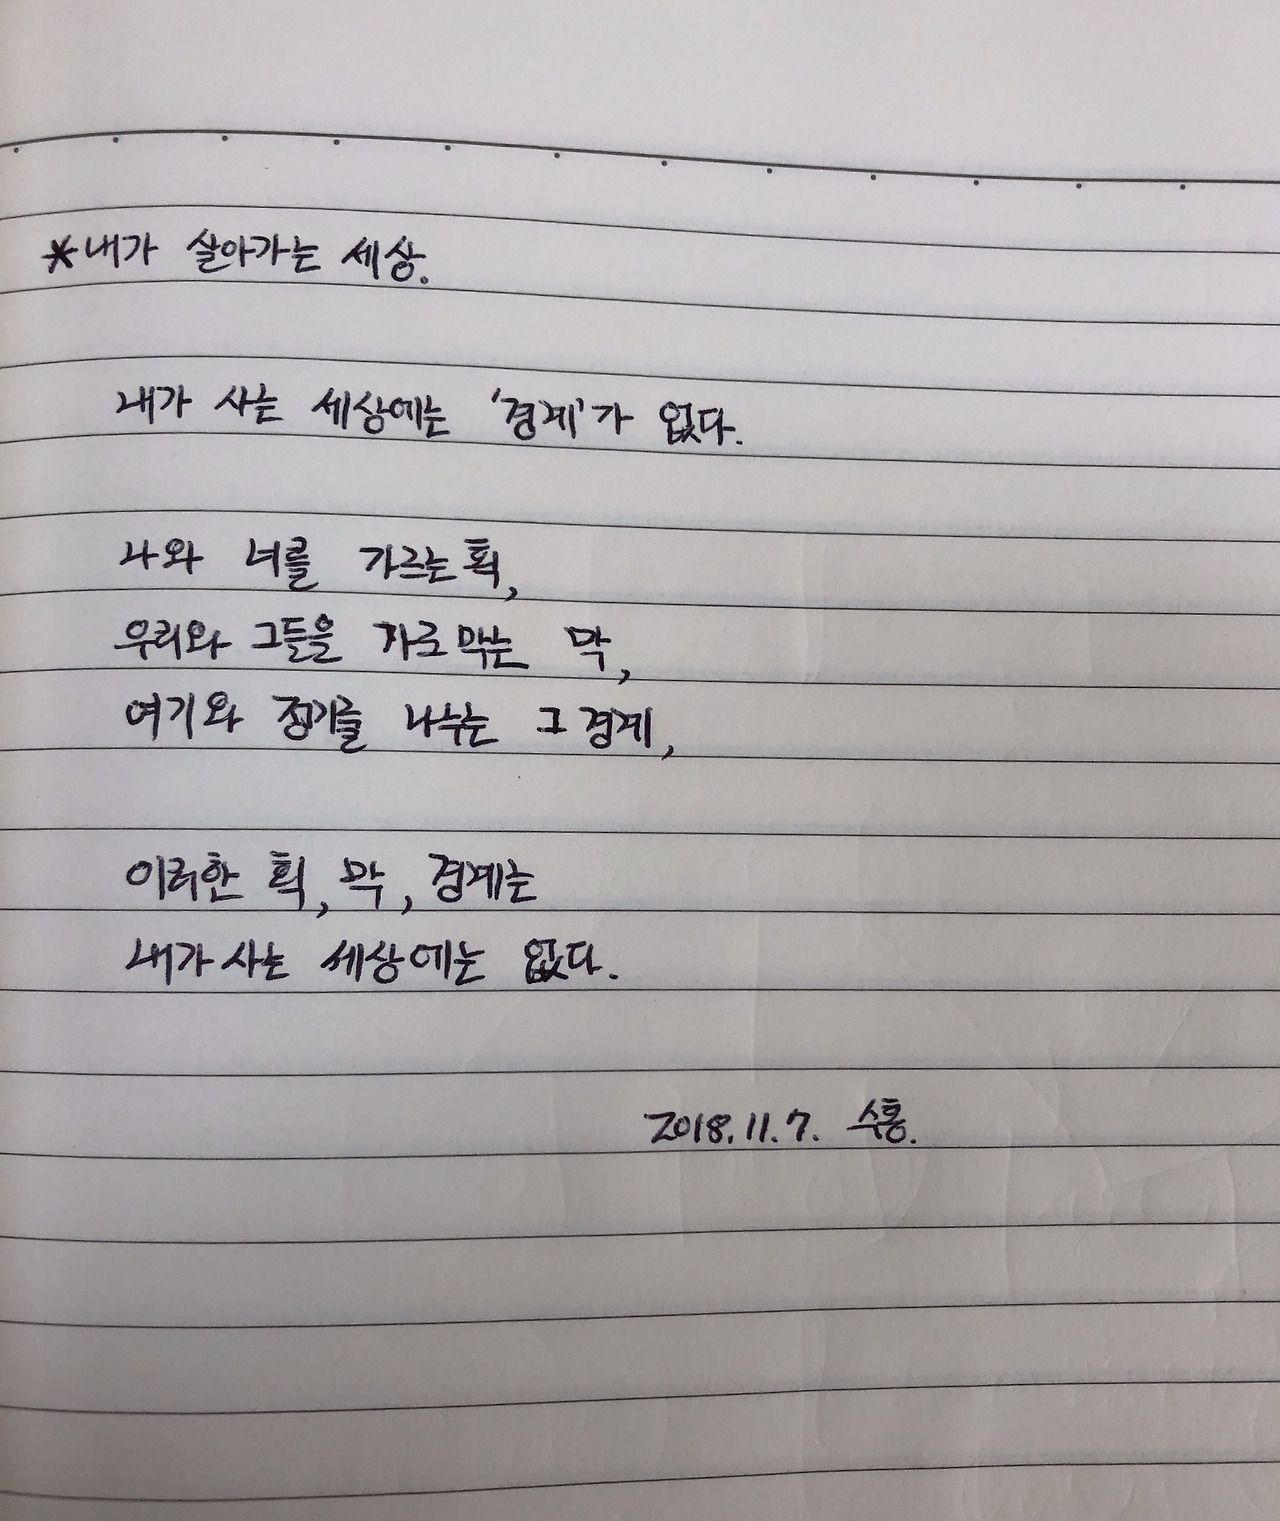 *내가 살아가는 세상.
내가 사는 세상에는 '경계'가 없다.
나와 너를 가르는 획,
우리와 그들을 가로막는 막,
여기와 저기를 나누는 그 경계,
이러한 획, 막, 경계는
내가 사는 세상에는 없다.
2018.11.7. 수홍.